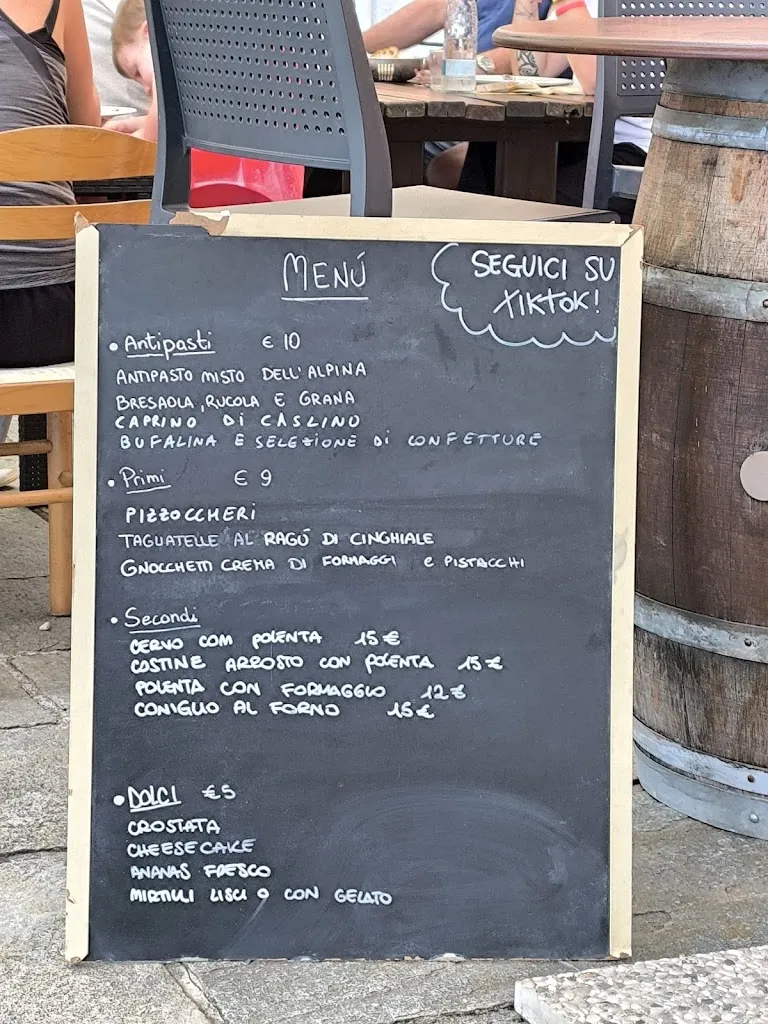 MENÚ
SEGUICI SU
TIKTOK!
• Antipasti € 10
ANTIPASTO MISTO DELL'ALPINA
BRESAOLA, RUCOLA E GRANA
CAPRINO DI CASLINO
BUFALINA E SELEZIONE DI CONFETTURE
• Primi € 9
PIZZOCCHERI
TAGLIATELLE AL RAGÚ DI CINGHIALE
GNOCCHETTI CREMA DI FORMAGGI e PISTACCHI
• Secondi
CERVO COM POLENTA 15 €
COSTINE ARROSTO CON POLENTA 15 €
POLENTA CON FORMAGGIO 12 €
CONIGLIO AL FORNO 15 €
• DOLCI €5
CROSTATA
CHEESECAKE
ANANAS FRESCO
MIRTILLI LISCI O CON GELATO